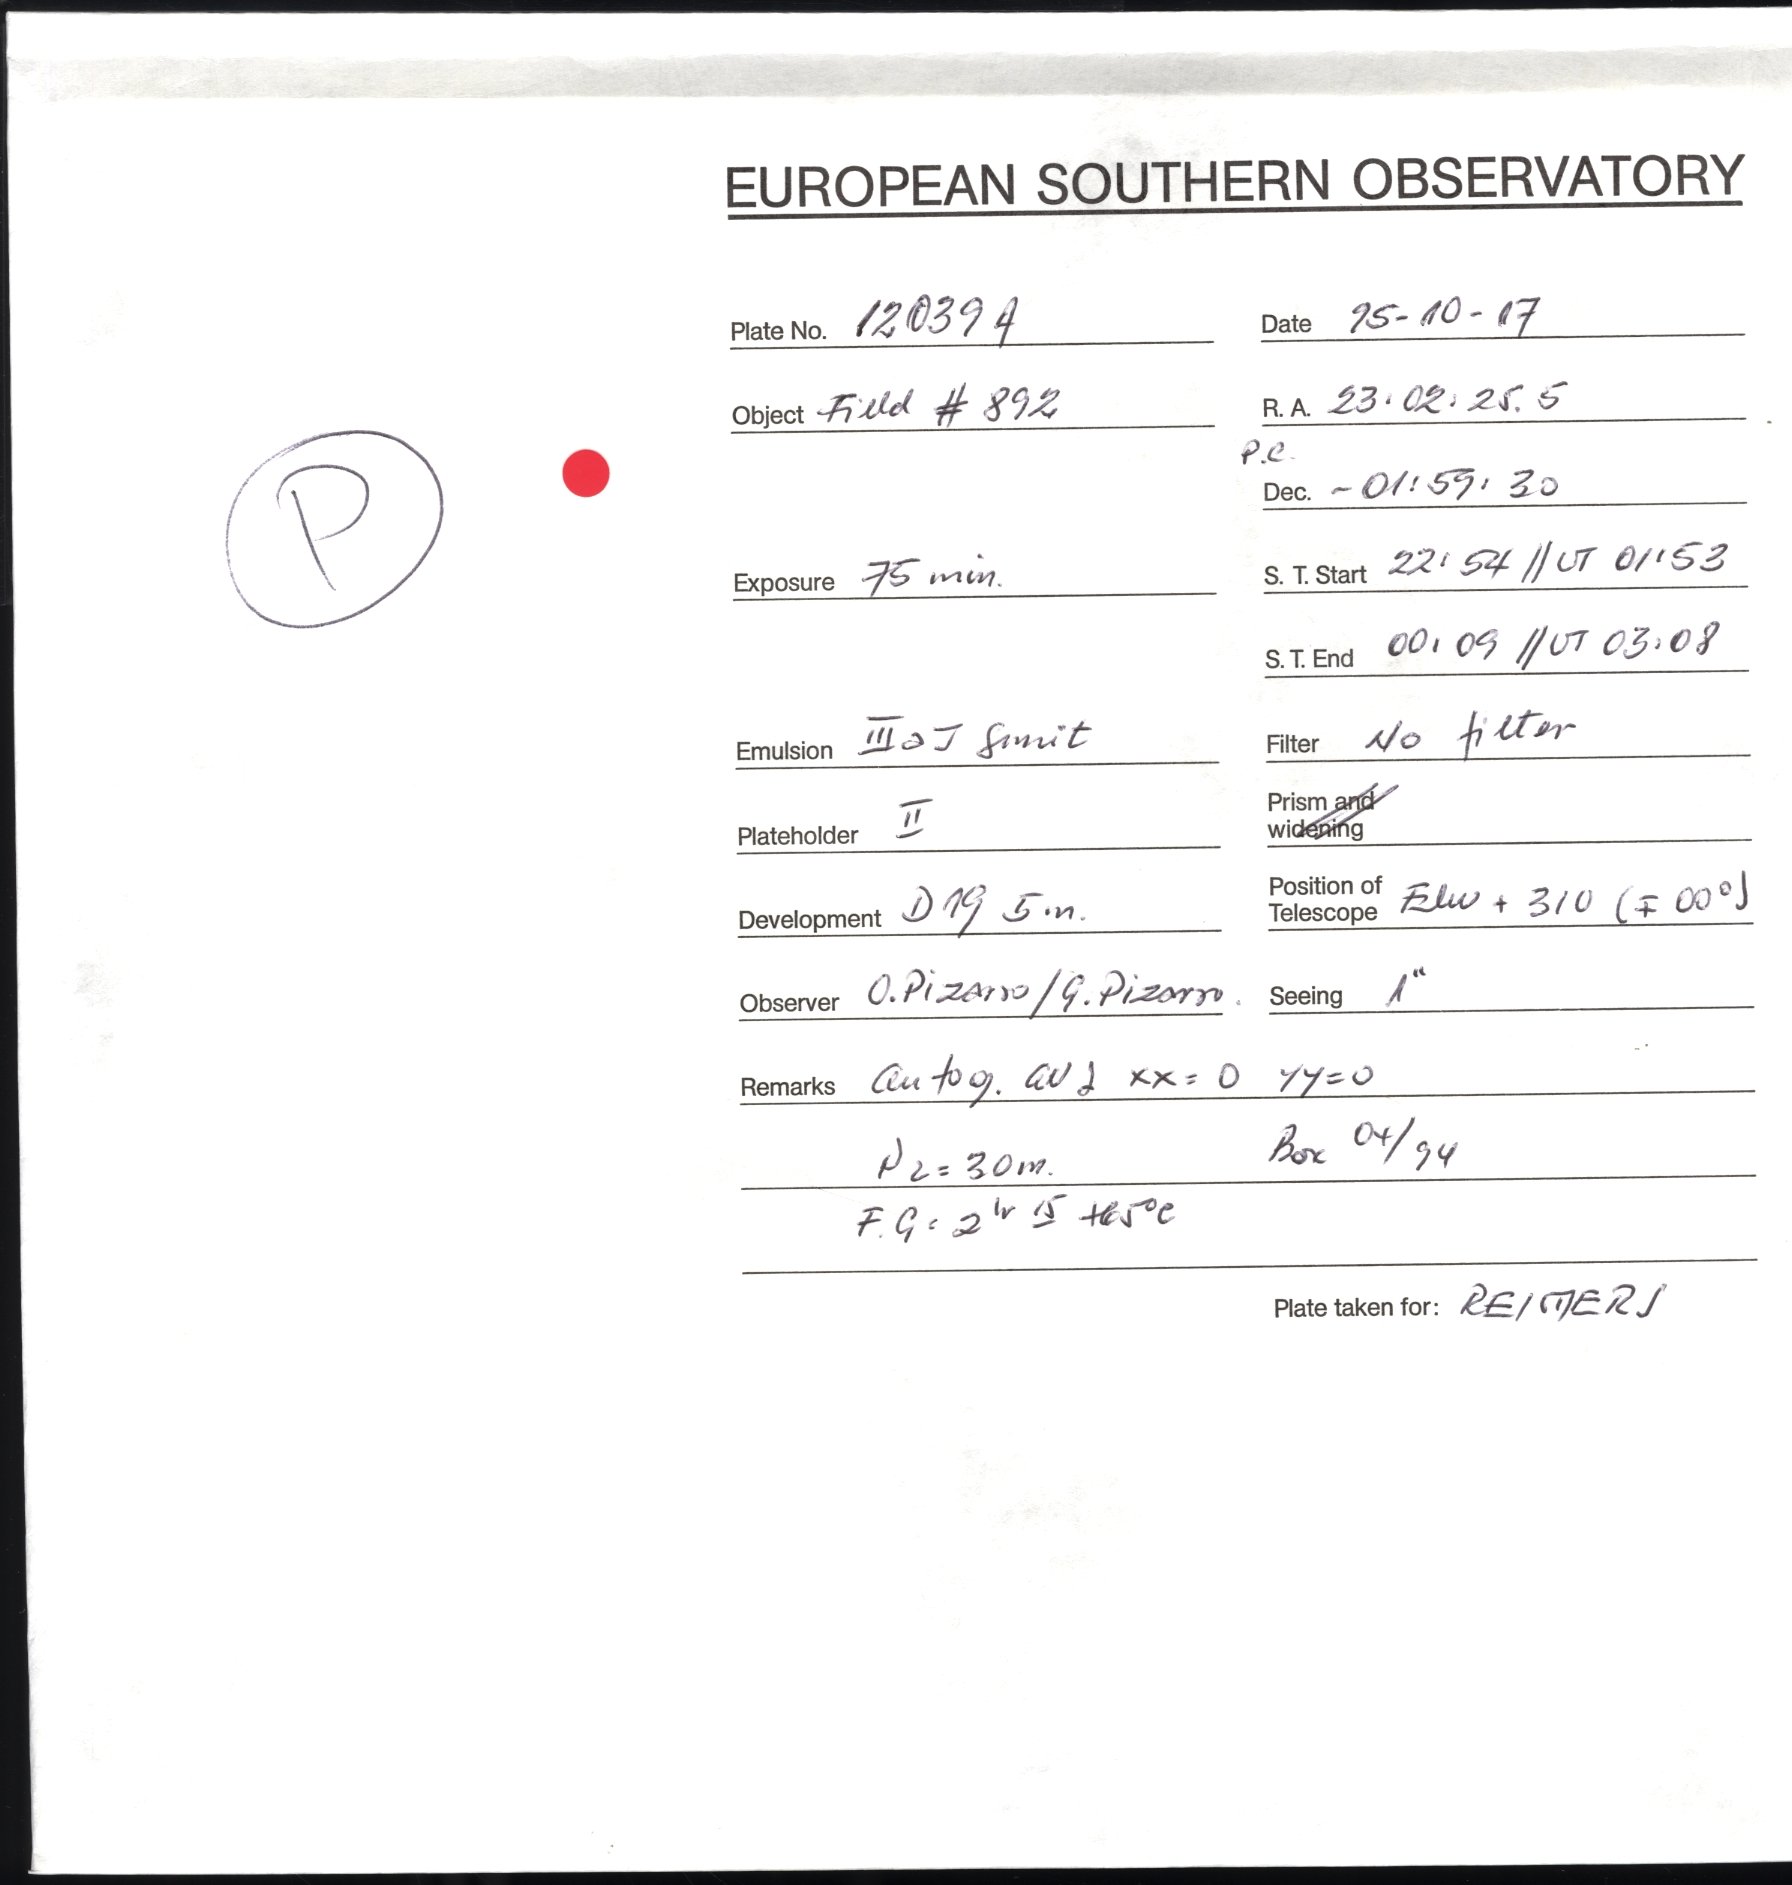 EUROPEAN SOUTHERN OBSERVATORY
Plate No. 12039A
Date 95-10-17
Object Field # 892
R. A. 23:02:25.5
P.C.
P
Dec. -01:59:30
Exposure 75 min.
S. T. Start 22:54 // UT 01:53
S. T. End 00:09 // UT 03:08
Emulsion IIIaJ
Filter No filter
Plateholder II
Prism and
widening
Development D19 5m.
Position of
Telescope + 310 (∓ 00°)
Observer O.Pizarro/G.Pizarro.
Seeing 1"
Remarks autog. xx=0 yy=0
N2=30m. Box 04/94
F.G: 2hr 15 +65°C
Plate taken for: REIMERS